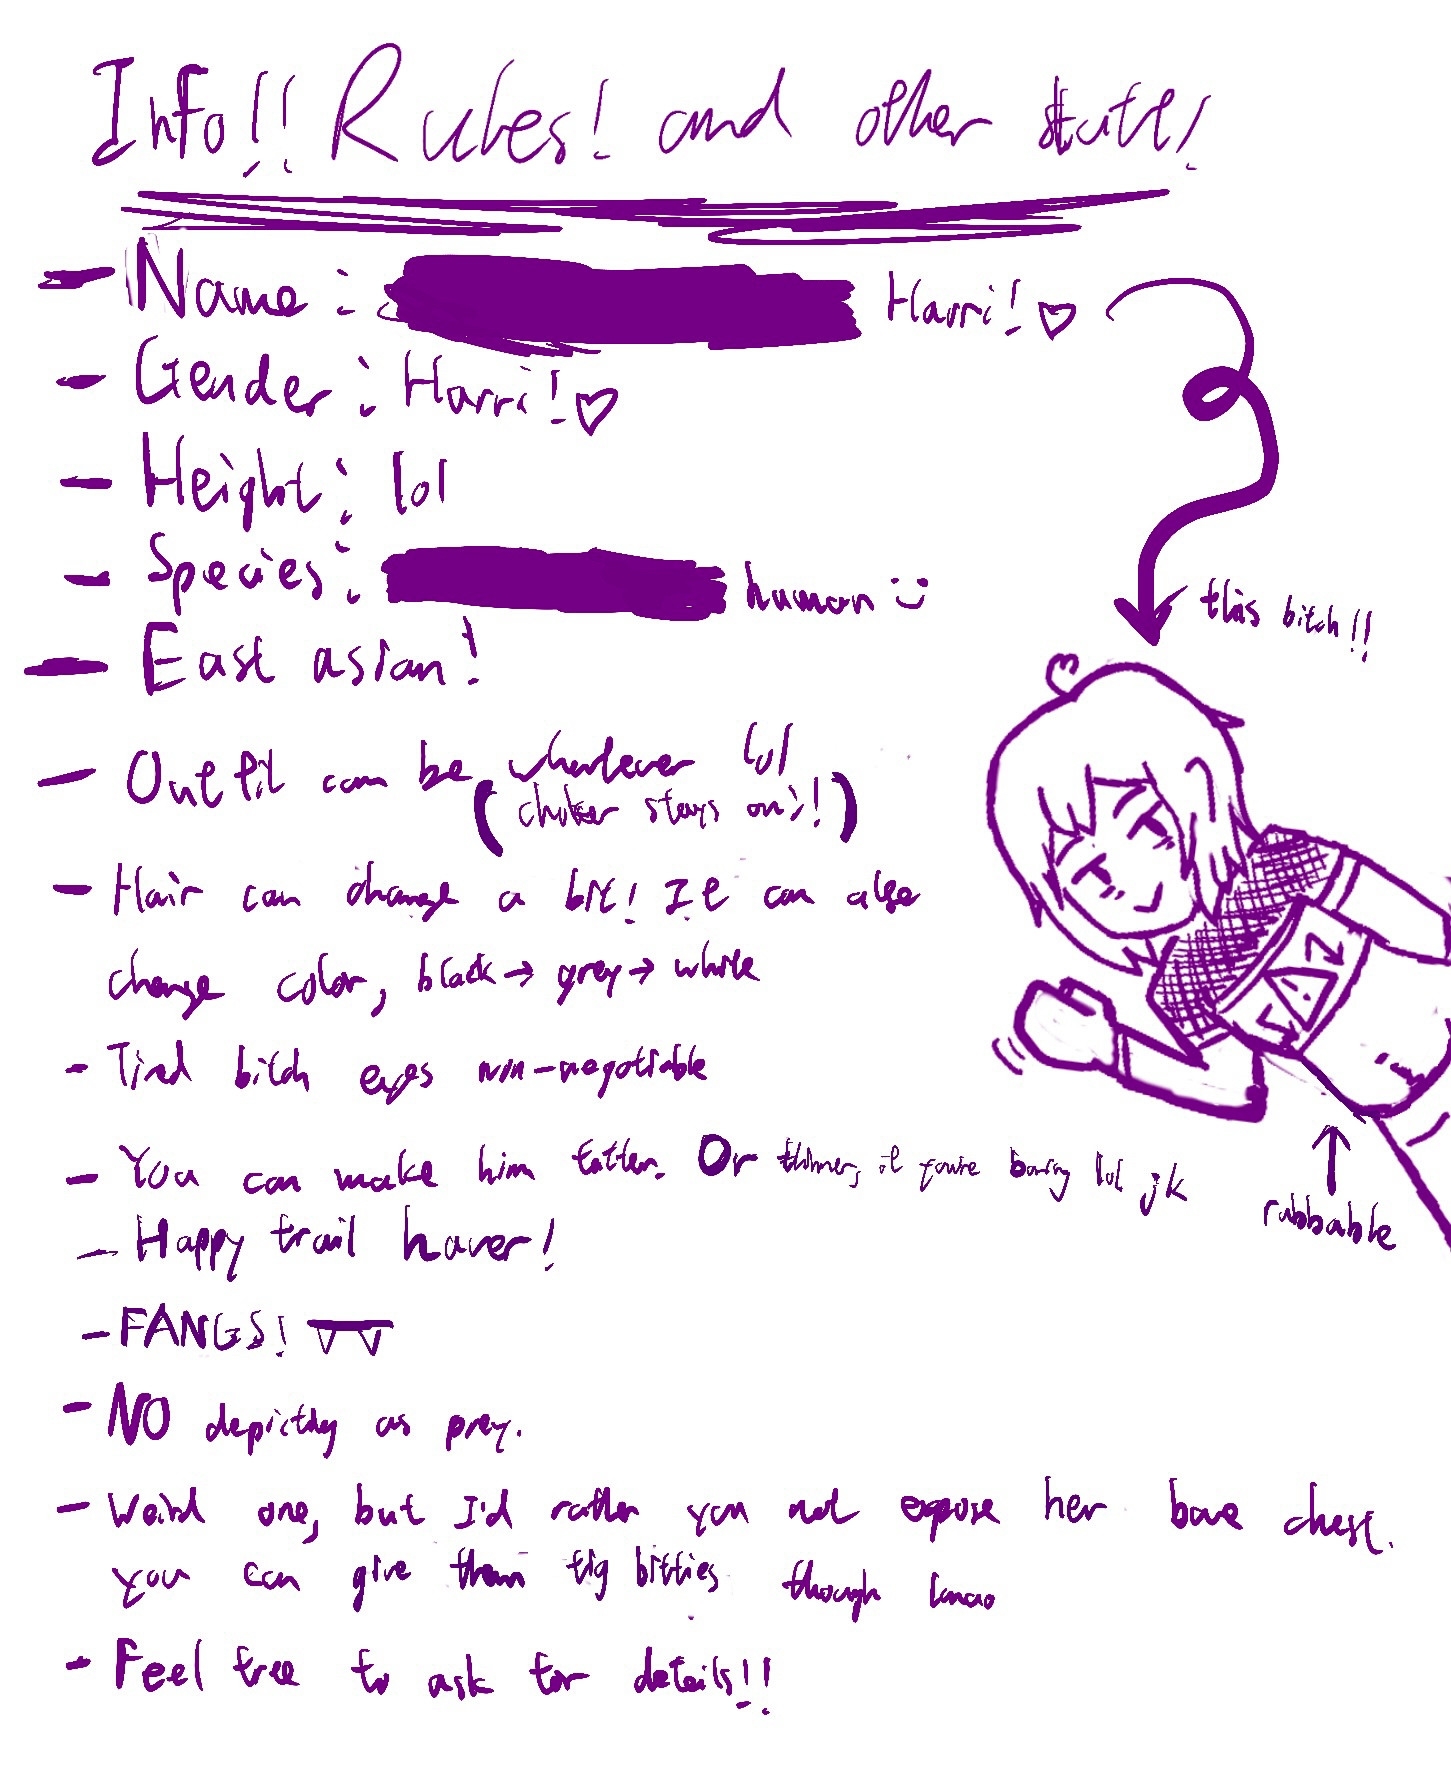 Info!! Rules! and other stuff!
- Name: Harri! ♡
- Gender: Harri! ♡
- Height: lol
- Species: human :)
- East asian!
this bitch!!
- Outfit can be whatever lol
(choker stays on :)!)
- Hair can change a bit! It can also
change color, black → grey → white
- Tired bitch eyes non-negotiable
- You can make him fatter. Or thinner, if you're boring lol jk
rubbable
- Happy trail haver!
- FANGS!
- NO depicting as prey.
- Weird one, but I'd rather you not expose her bare chest.
you can give them tig bitties though lmao
- Feel free to ask for details!!